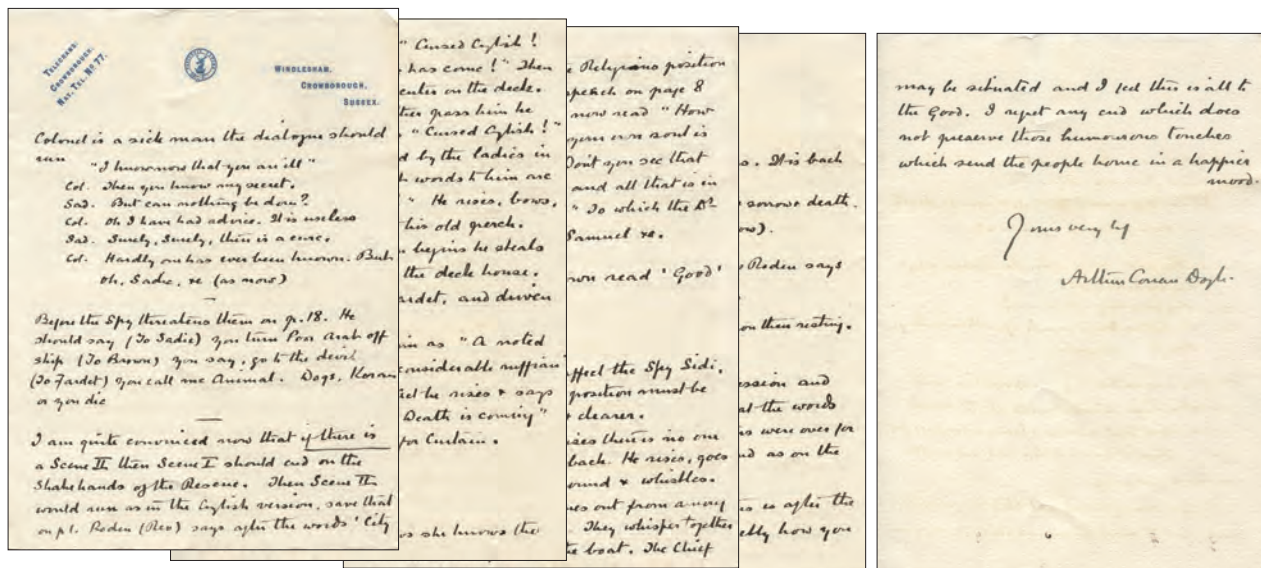 TELEGRAMS:
CROWBOROUGH.
NAT. TEL. NO 77.
WINDLESHAM,
CROWBOROUGH,
SUSSEX.
Colonel is a sick man the dialogue should
run
"I know now that you are ill"
Col. Then you know my secret.
Sad. But can nothing be done?
Col. Oh I have had advice. It is useless
Sad. Surely, Surely, there is a cure.
Col. Hardly one has ever been known. But
oh, Sadie, &c (as now)
Before the Spy threatens them on p. 18. He
should say (To Sadie) you turn Poor Arab off
ship (To Brown) you say, go to the devil
(To Fardet) you call me Animal. Dogs, Koran
or you die
I am quite convinced now that if there is
a Scene II then Scene I should end on the
Shakehands of the Rescue. Then Scene II
would run as in the English version, save that
on p1. Roden (Rev) says after the words 'City
"Cursed English!
has come!" Then
on the deck.
pass him he
"Cursed English!"
d by the ladies in
words to him are
" He rises, bows,
his old perch.
begins he steals
the deck house.
ardet, and driven
as "A noted
considerable ruffian
he rises & says
Death is coming"
for Curtain.
she knows the
e Religious position
speech on page 8
now read "How
your own soul is
Don't you see that
and all that is in
" To which the Dr
Samuel &c.
own read 'Good'
affect the Spy Sidi,
position must be
& clearer.
rises there is no one
back. He rises, goes
ound & whistles.
es out from among
. They whisper together
e boat. The Chief
s. It is back
sorrow & death.
ow).
Roden says
on them resting.
ession and
at the words
were over for
nd as on the
is after the
how you
may be situated and I feel this is all to
the Good. I regret any end which does
not preserve those humourous touches
which send the people home in a happier
mood.
Yours very try
Arthur Conan Doyle.